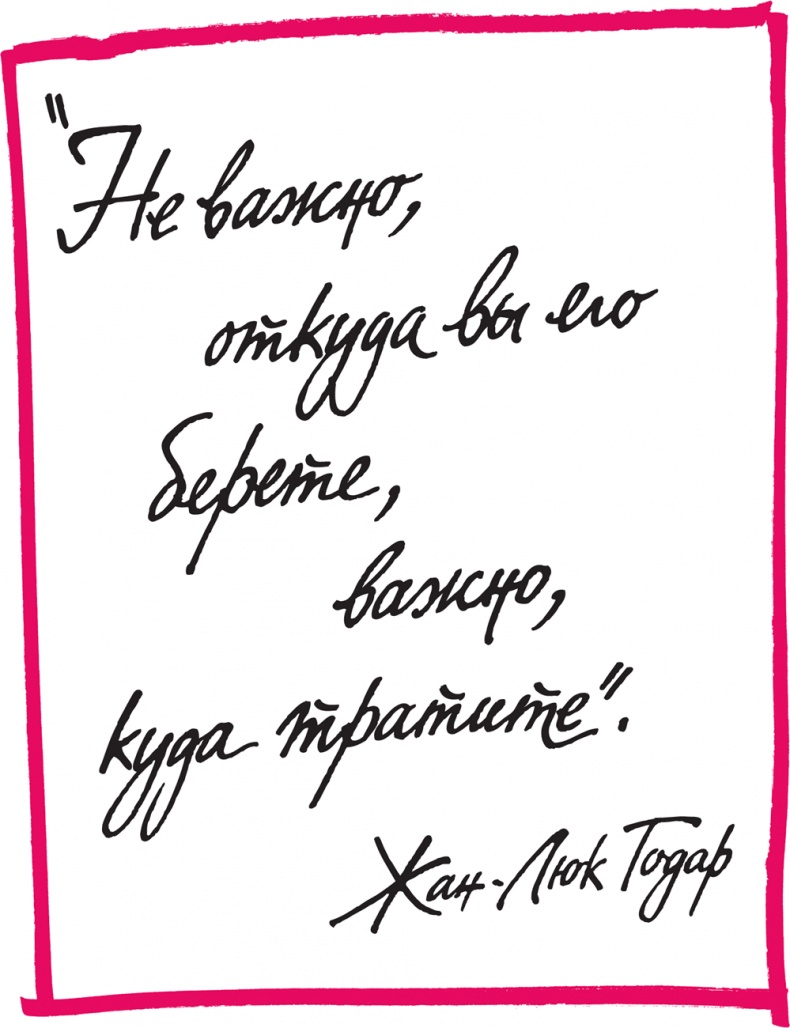 "Не важно,
откуда вы его
берете,
важно,
куда тратите".
Жан-Люк Годар